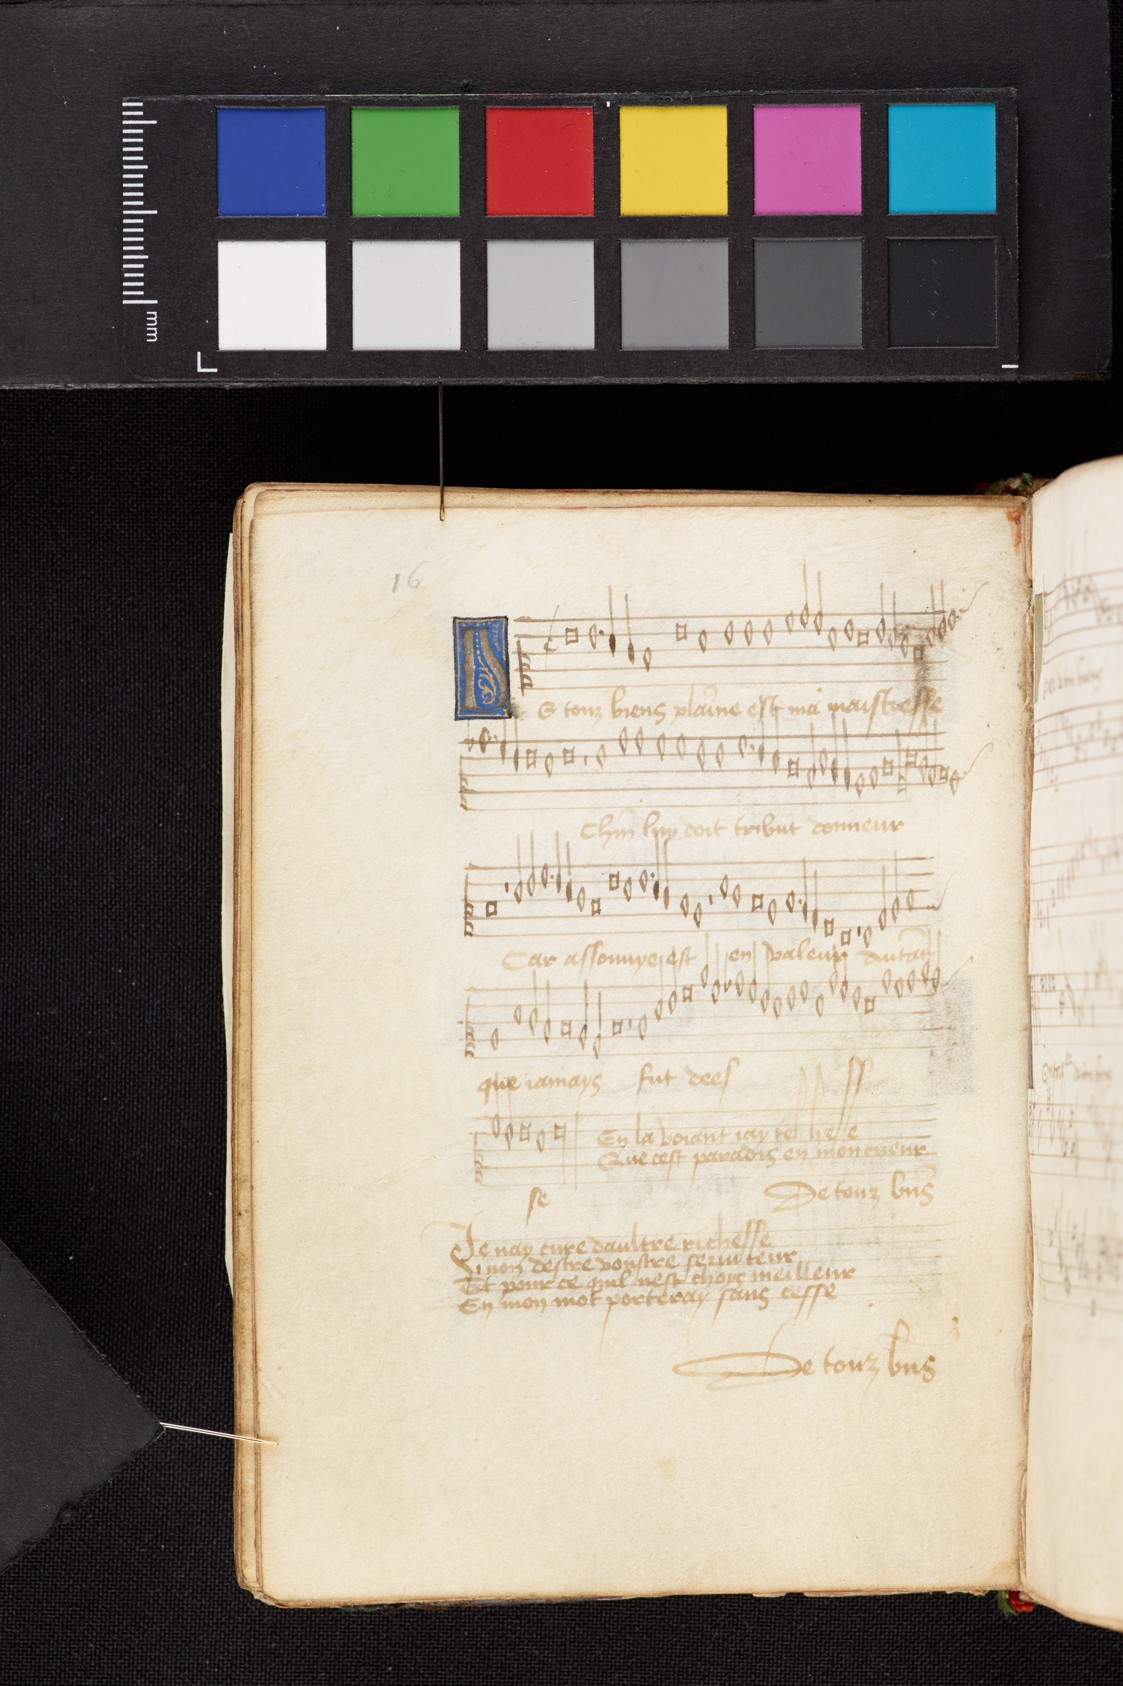 mm
16
D
E touz biens plaine est ma maistresse
Chũn luy doit tribut donneur
Car assouuye est en valeur Autãt
que iamays fut dees
En la voiant iay tel liesse
Que cest paradis en mon cueur
se De touz bñs
Je nay cure daultre richesse
Si non destre vonstre seruiteur
Et pour ce quil nest choix meilleur
En mon mot porteray sans cesse
De touz bñs